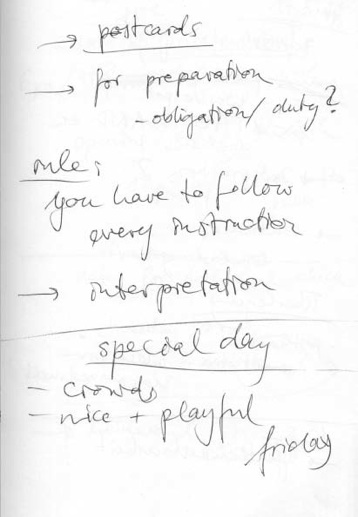 → postcards
→ for preparation
- obligation/duty?
rule:
you have to follow
every instruction
→ interpretation
special day
- crowds
- nice + playful
friday